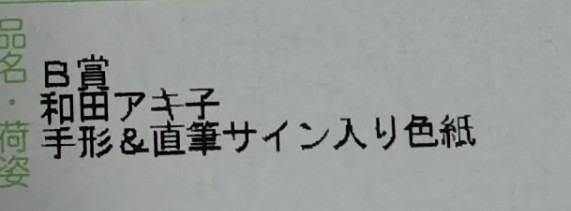 品名・荷姿
B賞
和田アキ子
手形&直筆サイン入り色紙